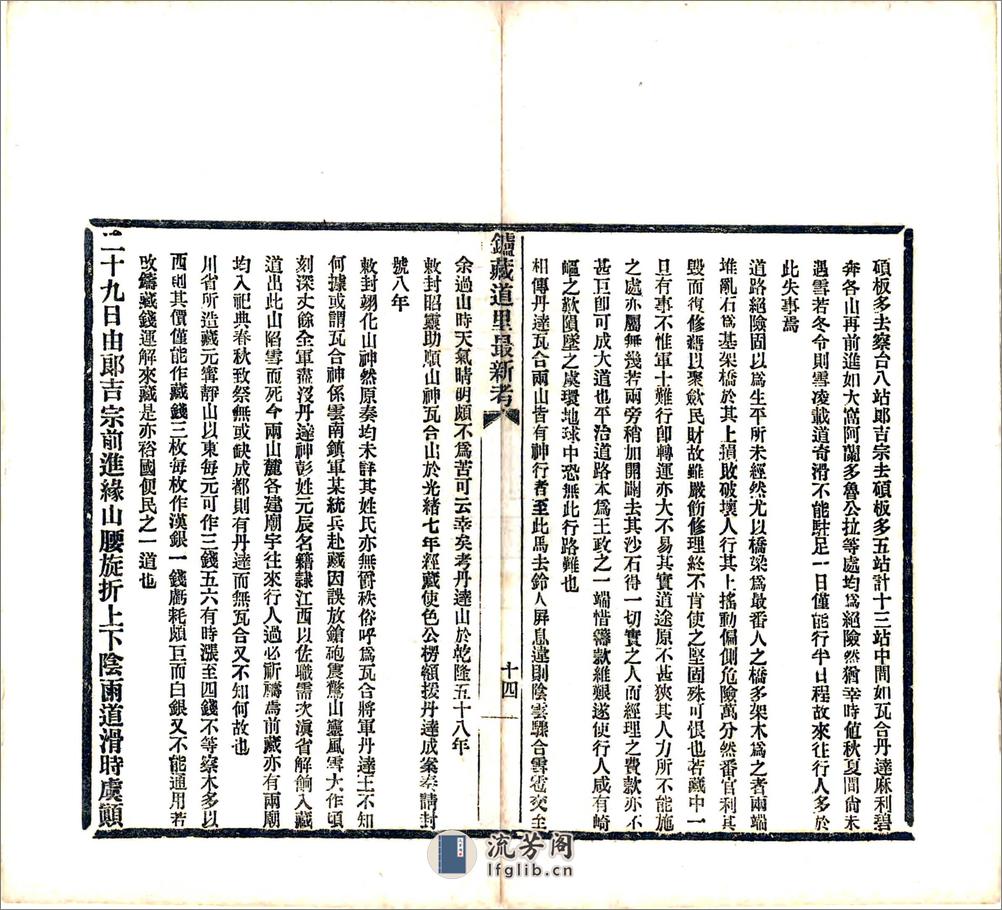 碩板多去察台八站郎吉宗去碩板多五站計十三站中間如瓦合丹達麻利碧
奔各山再前進如大窩阿蘭多魯公拉等處均爲絕險然猶幸時値秋夏間尙未
遇雪若冬令則雪凌載道奇滑不能駐足一日僅能行半日程故來往行人多於
此失事焉
道路絕險固以爲生平所未經然尤以橋梁爲最番人之橋多架木爲之者兩端
堆亂石爲基架橋於其上損敗破壞人行其上搖動偏側危險萬分然番官利其
毀而復修藉以聚歛民財故雖嚴飭修理終不肯使之堅固殊可恨也若藏中一
旦有事不惟軍士難行卽轉運亦大不易其實道途原不甚狹其人力所不能施
之處亦屬無幾若兩旁稍加開闢去其沙石得一切實之人而經理之費款亦不
甚巨卽可成大道也平治道路本爲王政之一端惜籌款維艱遂使行人咸有崎
嶇之歎隕墜之虞環地球中恐無此行路難也
相傳丹達瓦合兩山皆有神行者至此馬去鈴人屏息違則陰雲驟合雪雹交至
鑪藏道里最新考
十四
余過山時天氣晴明頗不爲苦可云幸矣考丹達山於乾隆五十八年
敕封昭靈助順山神瓦合山於光緒七年經藏使色公楞額援丹達成案奏請封
號八年
敕封翊化山神然原奏均未詳其姓氏亦無爵秩俗呼爲瓦合將軍丹達王不知
何據或謂瓦合神係雲南鎮軍某統兵赴藏因誤放鎗砲震驚山靈風雪大作頃
刻深丈餘全軍盡沒丹達神彭姓元辰名籍隸江西以佐職需次滇省解餉入藏
道出此山陷雪而死今兩山麓各建廟宇往來行人過必祈禱焉前藏亦有兩廟
均入祀典春秋致祭無或缺成都則有丹達而無瓦合又不知何故也
川省所造藏元寗靜山以東每元可作三錢五六有時漲至四錢不等察木多以
西則其價僅能作藏錢三枚每枚作漢銀一錢虧耗頗巨而白銀又不能通用若
改鑄藏錢運解來藏是亦裕國便民之一道也
二十九日由郎吉宗前進緣山腰旋折上下陰雨道滑時虞顚
流芳阁
lfglib.cn